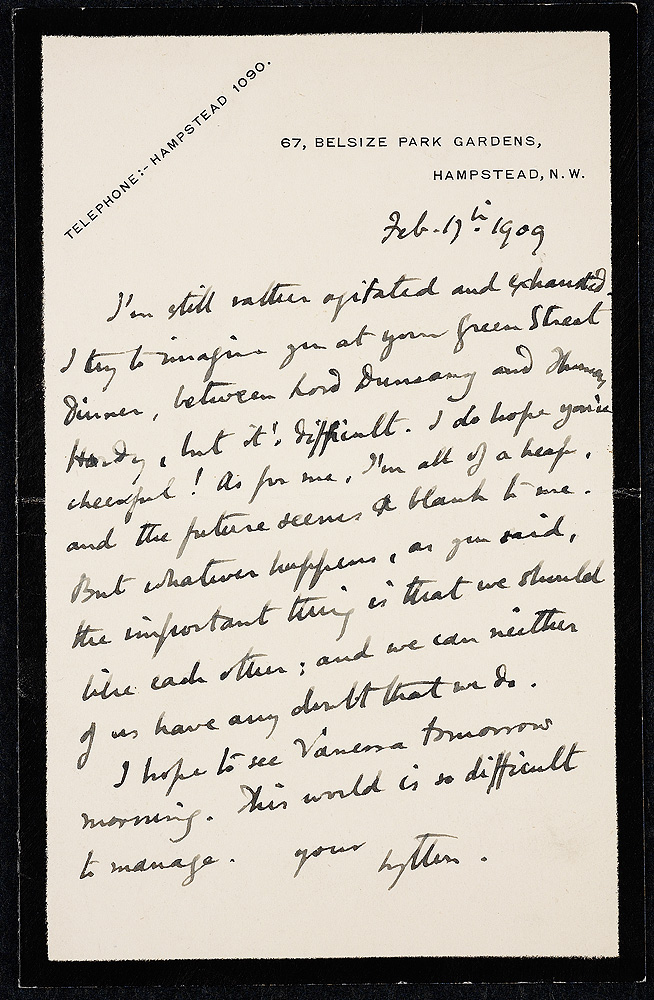 TELEPHONE:- HAMPSTEAD 1090.
67, BELSIZE PARK GARDENS,
HAMPSTEAD, N.W.
Feb. 17th 1909
I'm still rather agitated and exhausted.
I try to imagine you at your Green Street
Dinner, between Lord Dunsany and Thomas
Hardy, but it's difficult. I do hope you're
cheerful! As for me, I'm all of a heap,
and the future seems blank to me.
But whatever happens, as you said,
the important thing is that we should
like each other; and we can neither
of us have any doubt that we do.
I hope to see Vanessa tomorrow
morning. This world is so difficult
to manage. your Lytton.